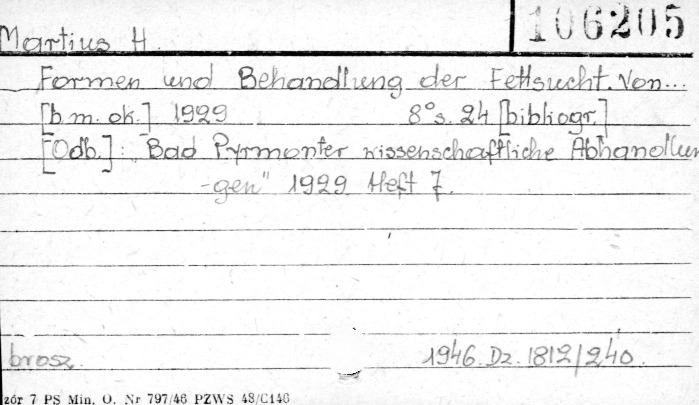 106205
Martius H.
Formen und Behandlung der Fettsucht. Von...
[b.m. ok.] 1929 8° s. 24 [bibliogr.]
[Odb.]: "Bad Pyrmonter wissenschaftliche Abhandlun
-gen" 1929 Heft 7.
brosz. 1946. Dz. 1812/240.
zór 7 PS Min. O. Nr 797/46 PZWS 48/C146